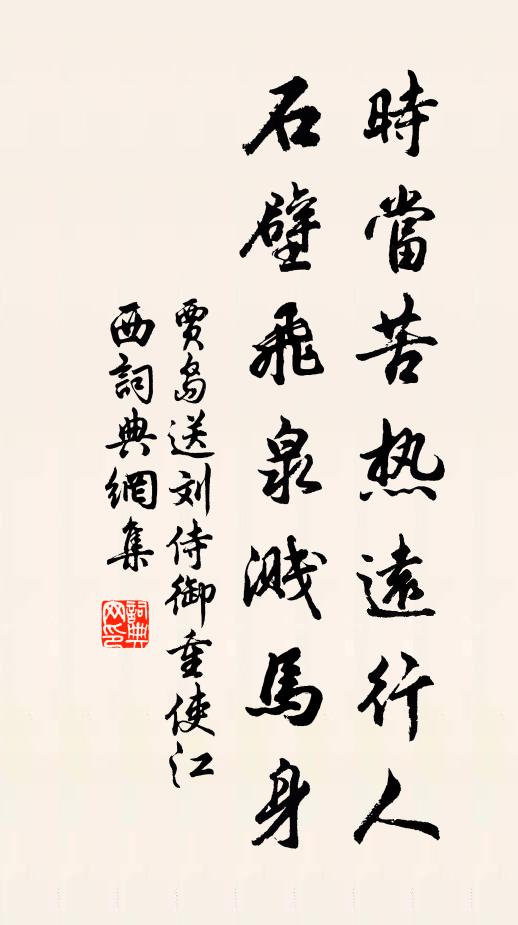 時當苦热遠行人
石壁飛泉溅馬身
賈島送刘侍御重使江
西詞典網集
詞典网印